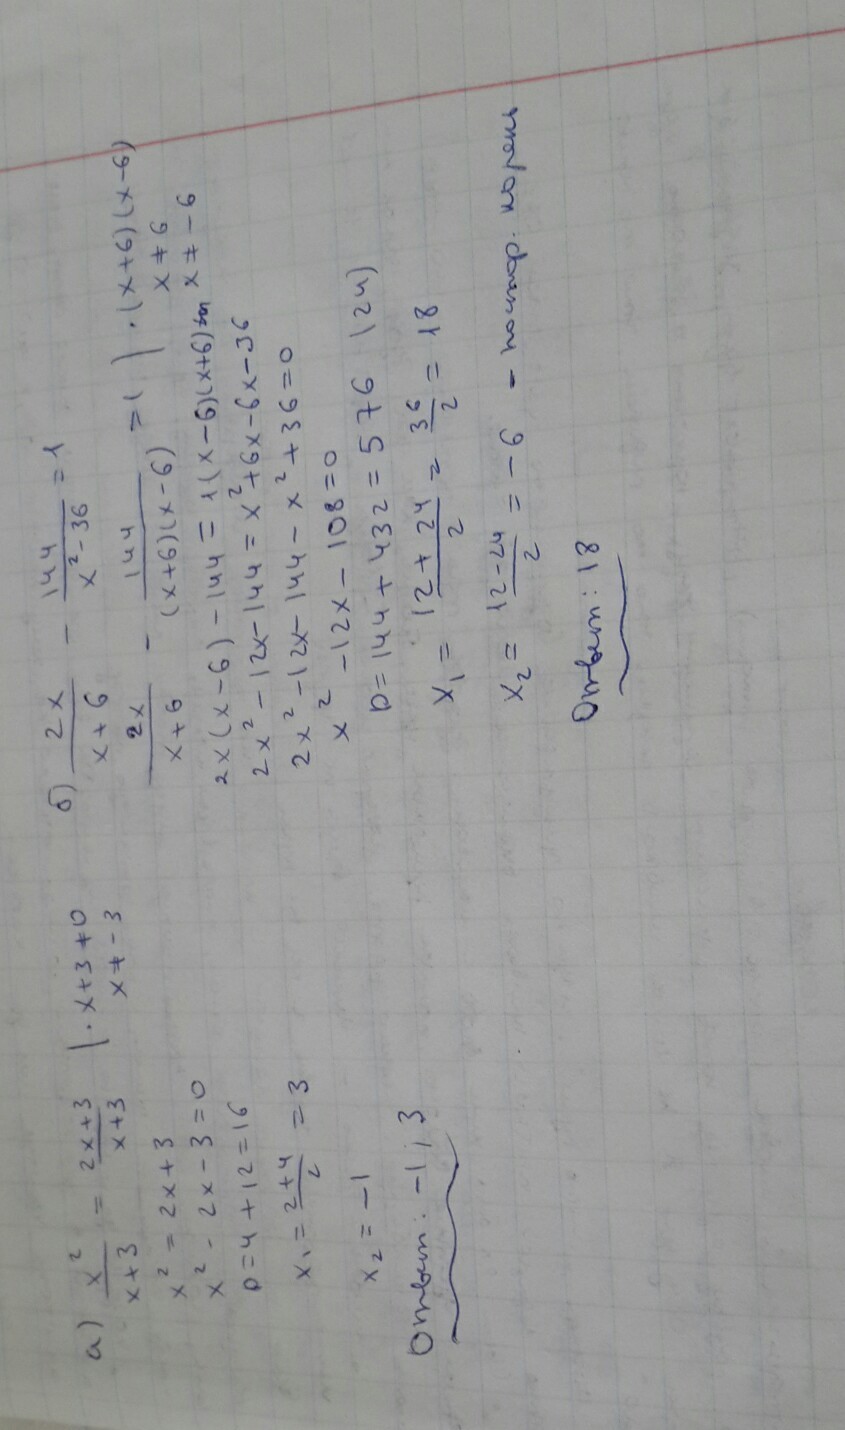 а) x²/(x+3) = (2x+3)/(x+3) | · x+3≠0
x≠-3
x² = 2x+3
x² - 2x-3=0
D=4+12=16
x₁ = (2+4)/2 = 3
x₂ = -1
Ответ: -1; 3
б) 2x/(x+6) - 144/(x²-36) = 1
2x/(x+6) - 144/((x+6)(x-6)) = 1 | · (x+6)(x-6)
x≠6
x≠-6
2x(x-6) - 144 = 1(x-6)(x+6)
2x² - 12x-144 = x²+6x-6x-36
2x² -12x-144 - x²+36=0
x² -12x-108=0
D=144+432=576 (24)
x₁ = (12+24)/2 = 36/2 = 18
x₂ = (12-24)/2 = -6 - постор. корень
Ответ: 18